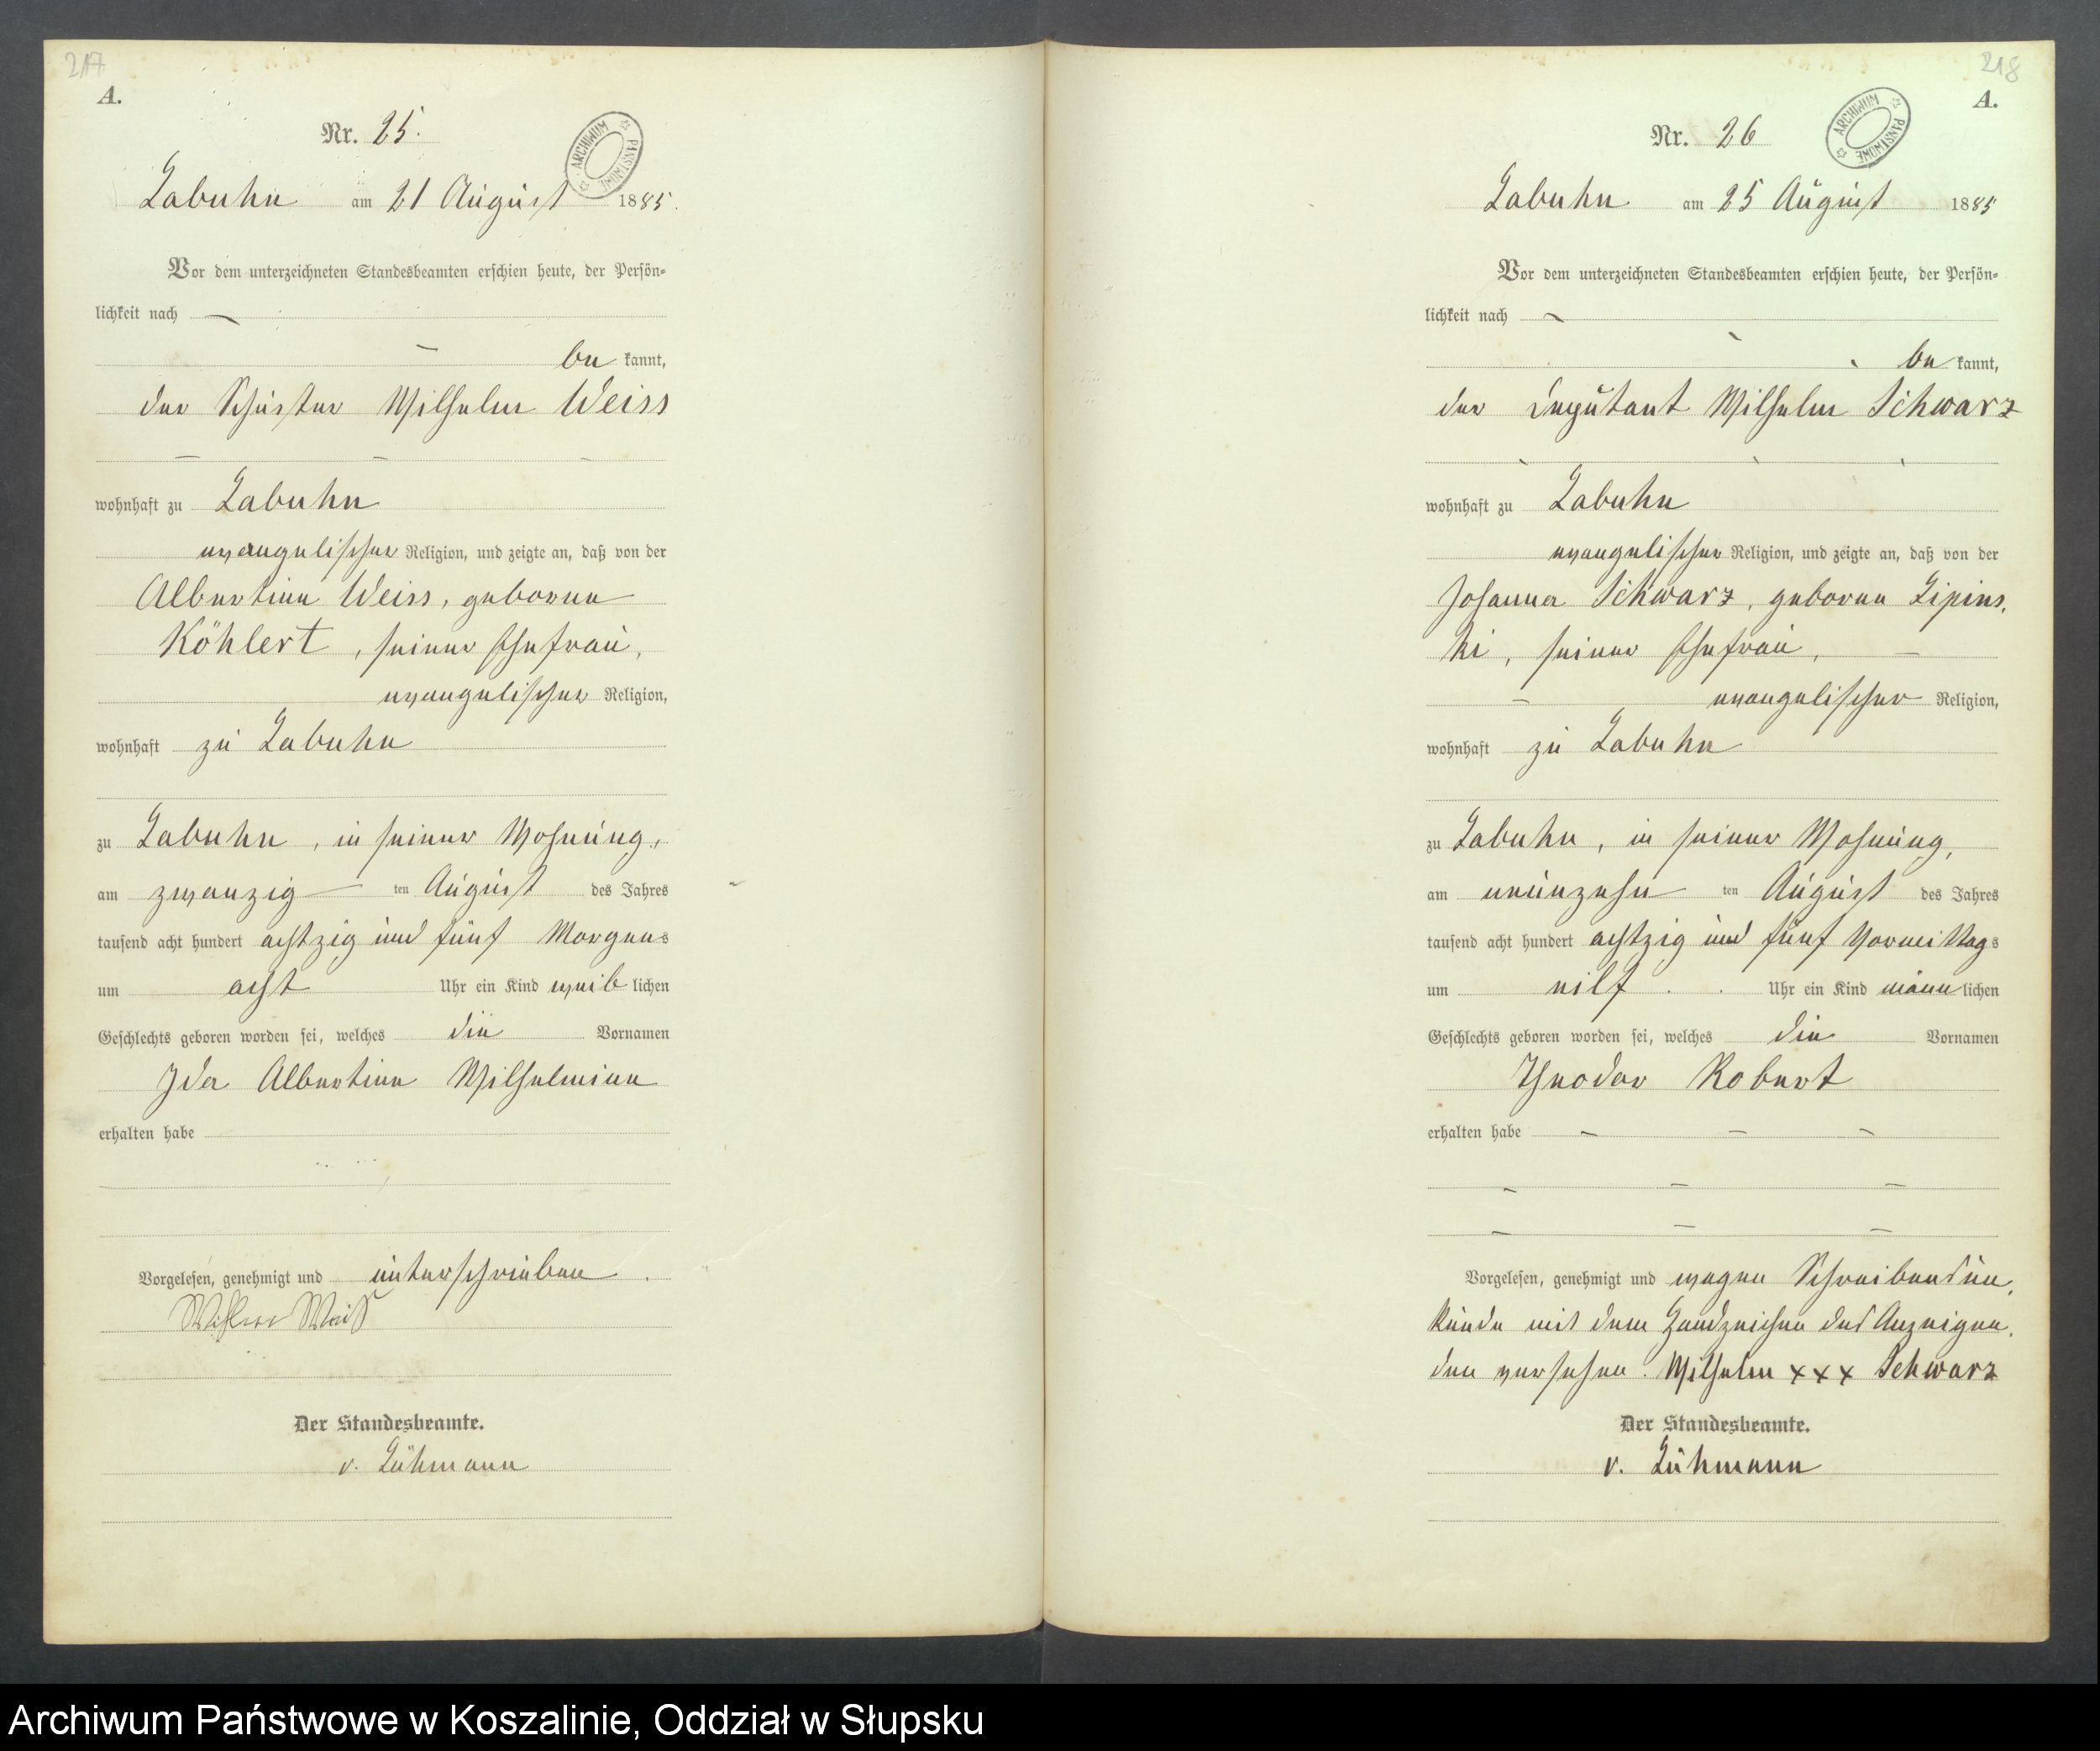 217
A.
Nr. 25.
ARCHIWUM PAŃSTWOWE
Labuhn am 21 August 1885.
Vor dem unterzeichneten Standesbeamten erschien heute, der Persön-
lichkeit nach —
— be kannt,
der Schuster Wilhelm Weiss
— — —
wohnhaft zu Labuhn
evangelischer Religion, und zeigte an, daß von der
Albertine Weiss, geborene
Köhlert, seiner Ehefrau,
evangelischer Religion,
wohnhaft zu Labuhn
zu Labuhn, in seiner Wohnung,
am zwanzig ten August des Jahres
tausend acht hundert achtzig und fünf Morgens
um acht Uhr ein Kind weib lichen
Geschlechts geboren worden sei, welches die Vornamen
Ida Albertine Wilhelmine
erhalten habe
Vorgelesen, genehmigt und unterschrieben.
Wilhelm Weiß
Der Standesbeamte.
v. Lühmann
218
A.
Nr. 26
ARCHIWUM PAŃSTWOWE
Labuhn am 25 August 1885
Vor dem unterzeichneten Standesbeamten erschien heute, der Persön-
lichkeit nach —
be kannt,
der Deputant Wilhelm Schwarz
wohnhaft zu Labuhn
evangelischer Religion, und zeigte an, daß von der
Johanna Schwarz, geborene Lipins-
ki, seiner Ehefrau, —
— evangelischer Religion,
wohnhaft zu Labuhn
zu Labuhn, in seiner Wohnung,
am neunzehn ten August des Jahres
tausend acht hundert achtzig und fünf Vormittags
um eilf Uhr ein Kind männ lichen
Geschlechts geboren worden sei, welches die Vornamen
Theodor Robert
erhalten habe — — —
— — —
— — —
Vorgelesen, genehmigt und wegen Schreibensun-
kunde mit dem Handzeichen des Anzeigen-
den versehen. Wilhelm xxx Schwarz
Der Standesbeamte.
v. Lühmann
Archiwum Państwowe w Koszalinie, Oddział w Słupsku